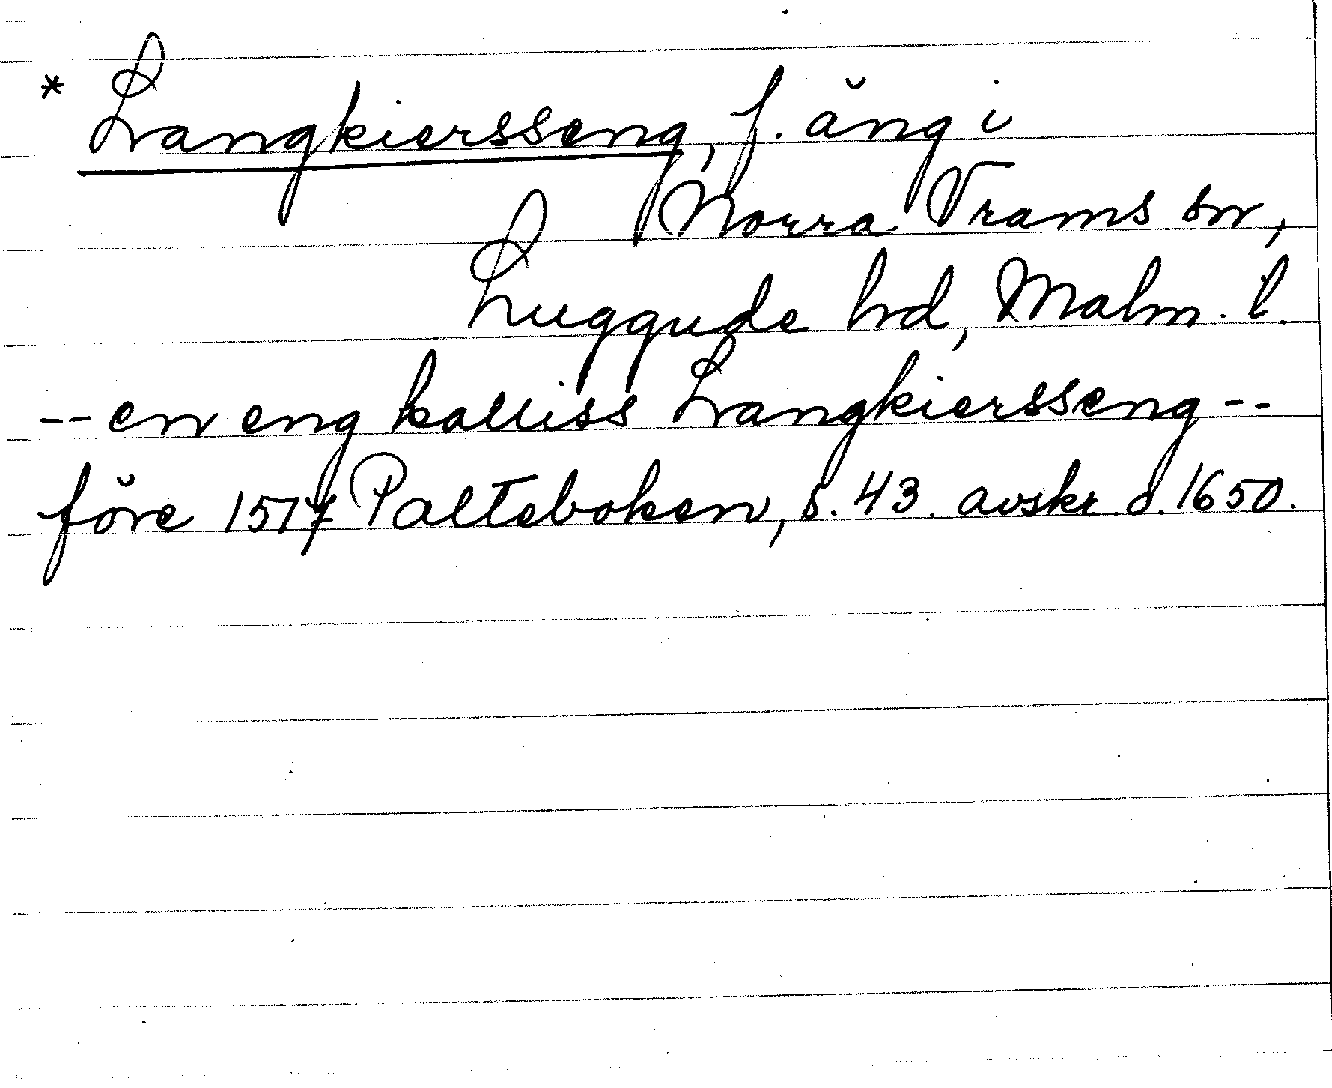 * Langkiersseng, f. äng i
Norra Vrams sn,
Luggude hd, Malm. l.
-- en eng kalliss Langkiersseng --
före 1517 Palteboken, s. 43. avskr. o. 1650.